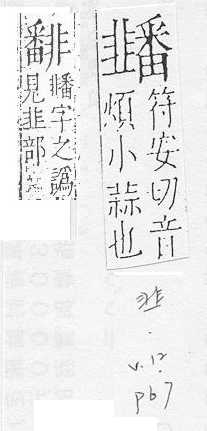 䪤
符安切音
煩小蒜也
䪤字之譌
見韭部
V.12.
p67